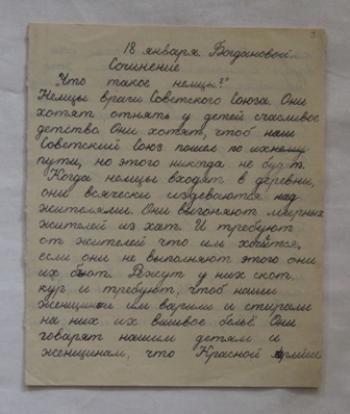 3
18 января. Богдановой.
Сочинение
"Что такое немцы?"
Немцы враги Советского Союза. Они
хотят отнять у детей счасливое
детство. Они хотят, чтоб наш
Советский Союз пошел по ихнему
пути, но этого никогда не будет.
Когда немцы входят в деревни,
они всячески издеваются над
жителями. Они выгоняют мирных
жителей из хат. И требуют
от жителей что им хочется,
если они не выполняют этого они
их бьют. Режут у них скот
кур и требуют, чтоб наши
женщины им варили и стирали
на них их вшивое бельё. Они
говарят нашим детям и
женщинам, что Красной Армии